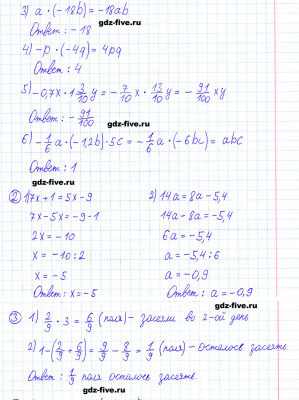 3) a · (-18b) = -18ab
gdz-five.ru
Ответ: -18
4) -p · (-4q) = 4pq
Ответ: 4
gdz-five.ru
5) -0,7x · 1 3/10 y = - 7/10 x · 13/10 y = - 91/100 xy
Ответ: - 91/100
gdz-five.ru
6) - 1/6 a · (-1,2b) · 5c = - 1/6 a · (-6bc) = abc
Ответ: 1
gdz-five.ru
② 1) 7x + 1 = 5x - 9 2) 14a = 8a - 5,4
7x - 5x = -9 - 1 14a - 8a = -5,4
2x = -10 6a = -5,4
x = -10 : 2 a = -5,4 : 6
x = -5 a = -0,9
Ответ: x = -5 Ответ: a = -0,9
gdz-five.ru
③ 1) 2/9 · 3 = 6/9 (поля) - засеяли во 2-ой день
gdz-five.ru
2) 1 - (2/9 + 6/9) = 9/9 - 8/9 = 1/9 (поля) - осталось засеять.
Ответ: 1/9 поля осталось засеять.
gdz-five.ru